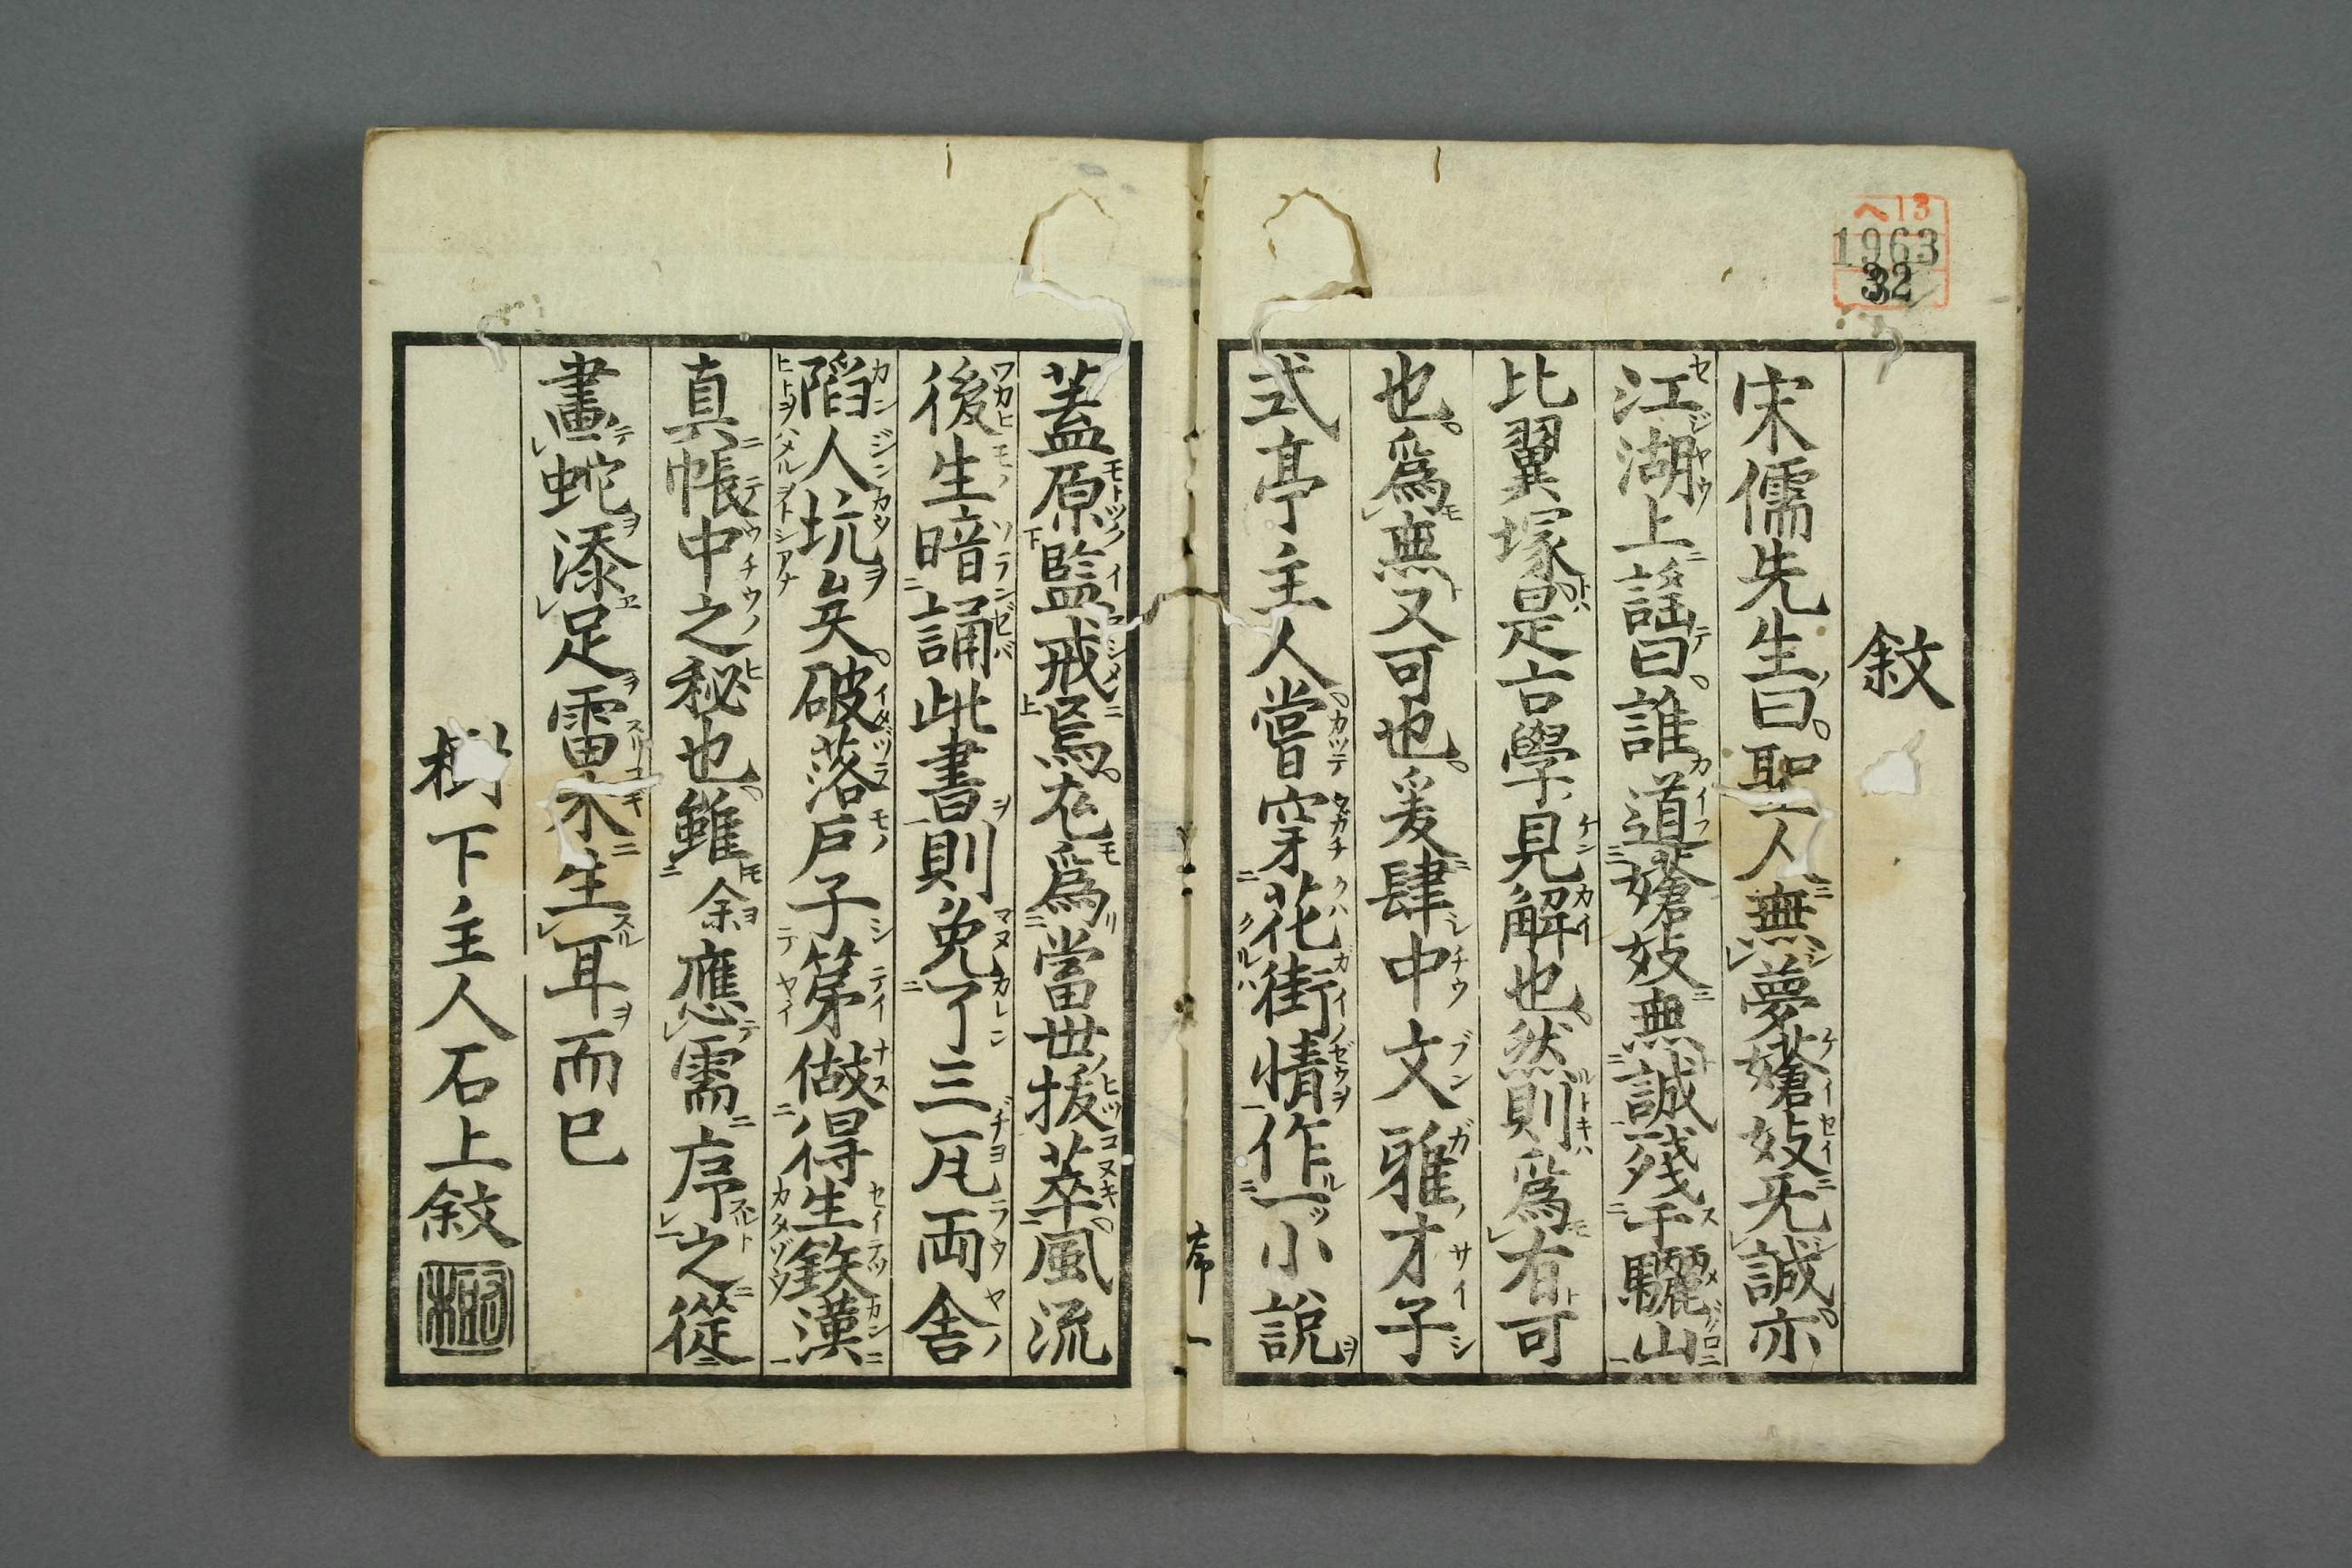 ヘ13
1963
32
敘
宋儒先生曰。聖人無夢。嫖妓无誠。亦
江湖上謡曰。誰道嫖妓無誠。殘于驪山
比翼塚。是言學見解也。然則爲有可
也。爲無又可也。爰肆中文雅才子
式亭主人。嘗穿花街情作一小說
序 一
蓋原監戒焉。尨爲當世拔萃。風流
後生暗誦此書則免了三瓦両舎
陷人坑矣。破落戸子第做得生鉄漢
真帳中之秘也。雖余應需序之從
畫蛇添足雷木生耳而已
樹下主人石上敘
樹